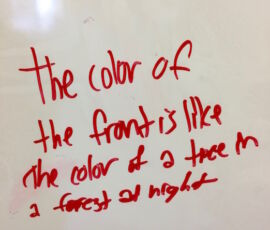 the color of
the front is like
the color of a tree in
a forest at night